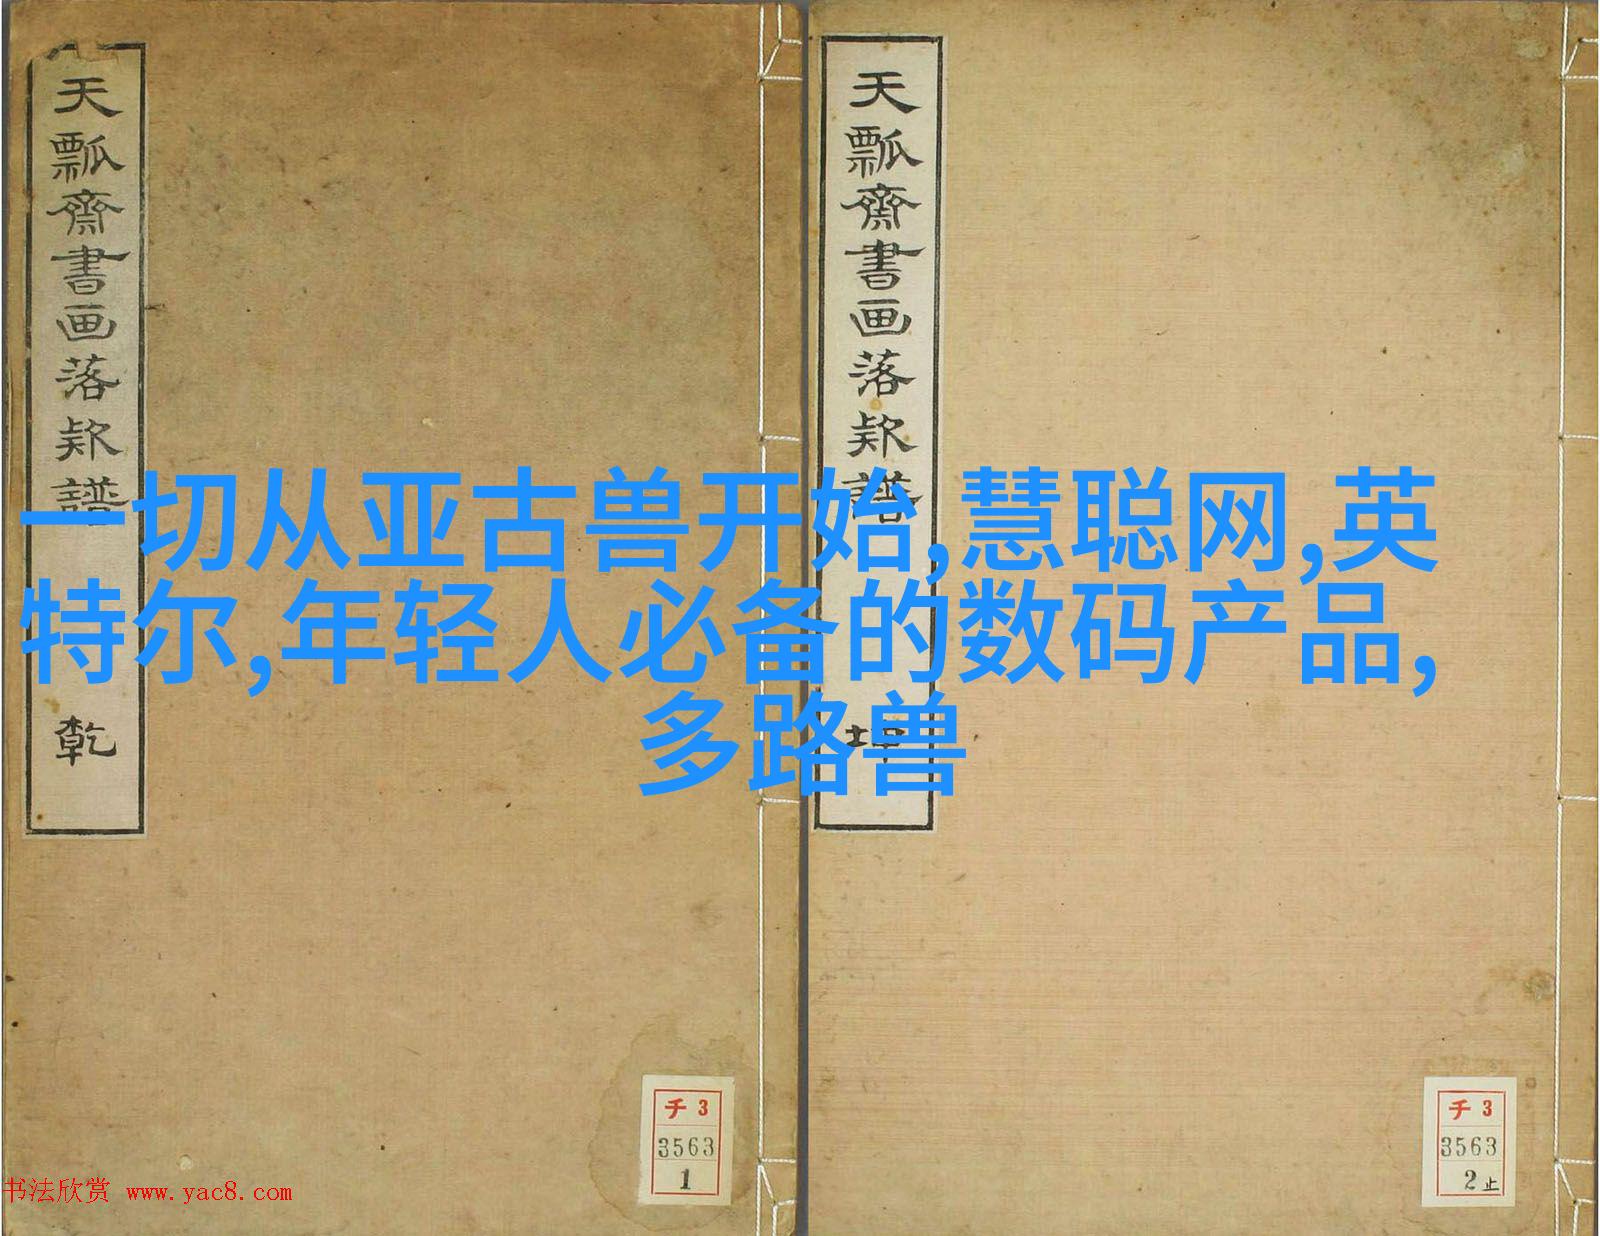 天瓢齋書画落欵譜
乾
天瓢齋書画落欵譜
坤
一切从亚古兽开始,慧聪网,英
特尔,年轻人必备的数码产品,
多路兽
チ 3
3563
1
チ 3
3563
2止
书法欣赏 www.yac8.com